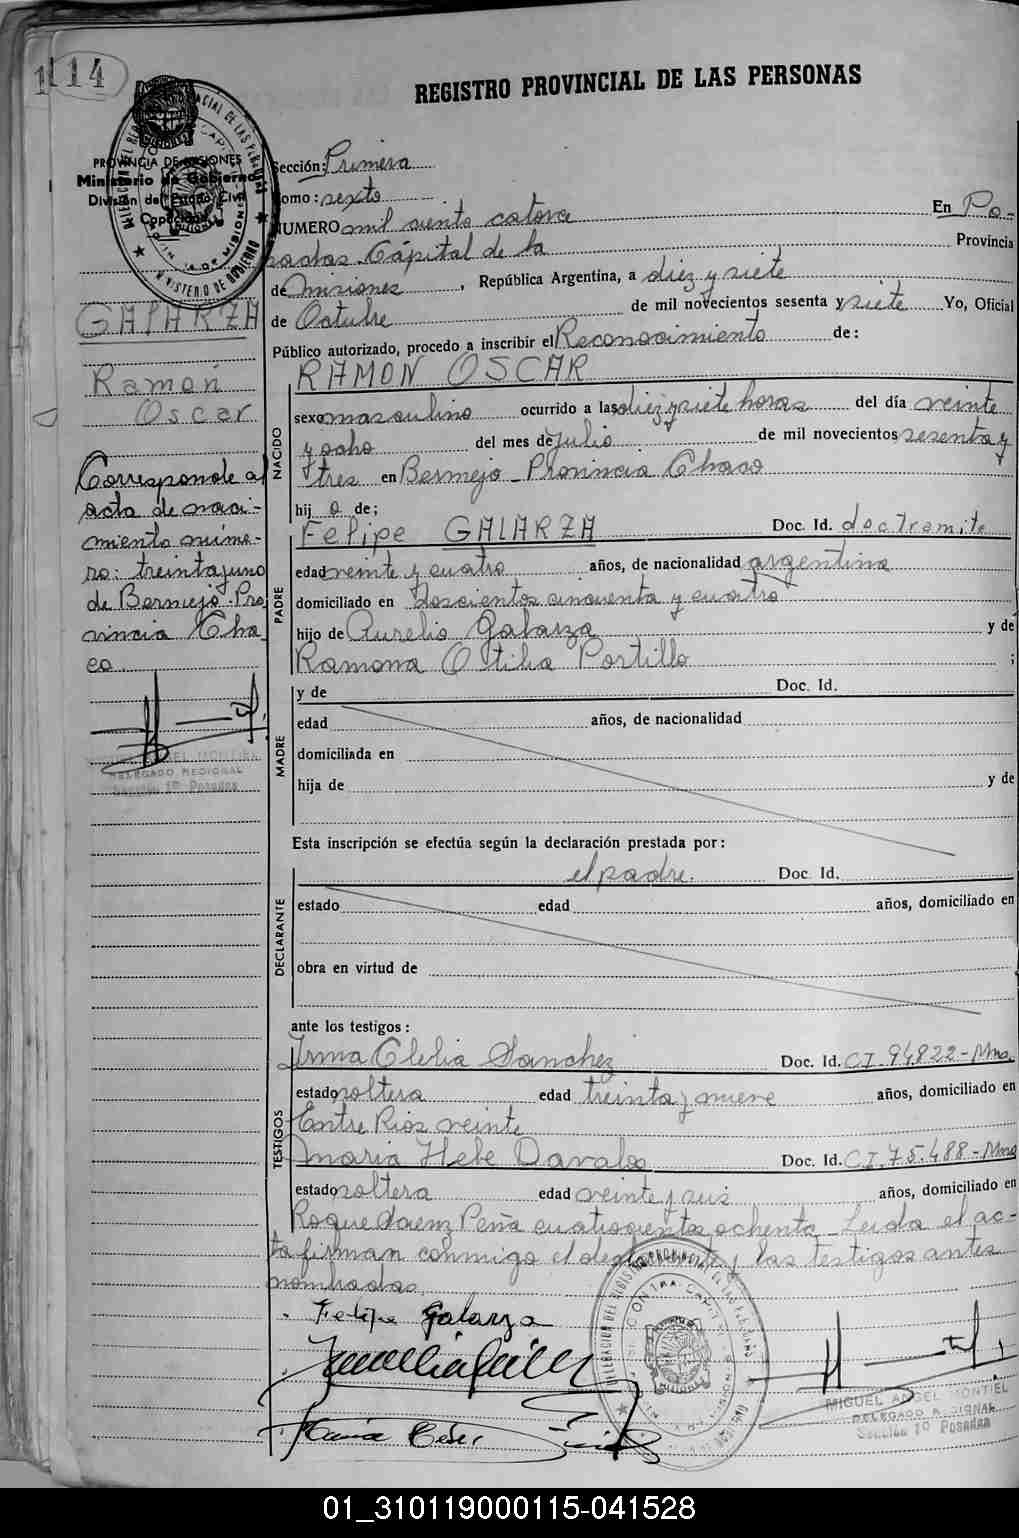 114
REGISTRO PROVINCIAL DE LAS PERSONAS
PROVINCIA DE MISIONES
Ministerio de Gobierno
División del Estado Civil
Sección: Primera
Tomo: sexto
NUMERO mil ciento catorce En Po-
sadas Cápital de la Provincia
de Misiones, República Argentina, a diez y siete
de Octubre de mil novecientos sesenta y siete Yo, Oficial
Público autorizado, procedo a inscribir el Reconocimiento de:
GALARZA
Ramon
Oscar
Corresponde al
acta de naci-
miento núme-
ro: treinta y uno
de Bermejo. Pro
vincia Cha
co.
MIGUEL ANGEL MONTIEL
DELEGADO REGIONAL
Sección 1º Posadas
NACIDO
RAMON OSCAR
sexo masculino ocurrido a las diez y siete horas del día veinte
y ocho del mes de julio de mil novecientos sesenta y
tres en Bermejo - Provincia Chaco
hij o de;
PADRE
Felipe GALARZA Doc. Id. doc tramite
edad veinte y cuatro años, de nacionalidad argentina
domiciliado en doscientos cincuenta y cuatro
hijo de Aurelio Galarza y de
Ramona Otilia Portillo ;
MADRE
y de Doc. Id.
edad años, de nacionalidad
domiciliada en
hija de y de
Esta inscripción se efectúa según la declaración prestada por:
DECLARANTE
el padre. Doc. Id.
estado edad años, domiciliado en
obra en virtud de
ante los testigos:
TESTIGOS
Irma Clelia Sanchez Doc. Id. C.I. 94.822-Mnes
estado soltera edad treinta y nueve años, domiciliado en
Entre Rios veinte
Maria Hebe Davalos Doc. Id. C.I. 75.488-Mnes
estado soltera edad veinte y seis años, domiciliado en
Roque Saenz Peña cuatrocientos ochenta Leida el ac-
ta firman conmigo el declarante y las testigos antes
nombradas.
Felipe Galarza
MIGUEL ANGEL MONTIEL
DELEGADO REGIONAL
Sección 1º Posadas
01_310119000115-041528